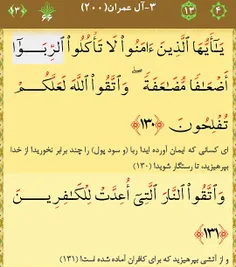 ۳-آل عمران(۲۰۰)
يَـٰٓأَيُّهَا ٱلَّذِينَ ءَامَنُوا۟ لَا تَأْكُلُوا۟ ٱلرِّبَوٰٓا۟
أَضْعَـٰفًا مُّضَـٰعَفَةً ۖ وَٱتَّقُوا۟ ٱللَّهَ لَعَلَّكُمْ
تُفْلِحُونَ ﴿۱۳۰﴾
ای کسانی که ایمان آورده اید! ربا (و سود پول) را چند برابر نخورید! از خدا
بپرهیزید، تا رستگار شوید! (۱۳۰)
وَٱتَّقُوا۟ ٱلنَّارَ ٱلَّتِىٓ أُعِدَّتْ لِلْكَـٰفِرِينَ
﴿۱۳۱﴾
و از آتشی بپرهیزید که برای کافران آماده شده است! (۱۳۱)